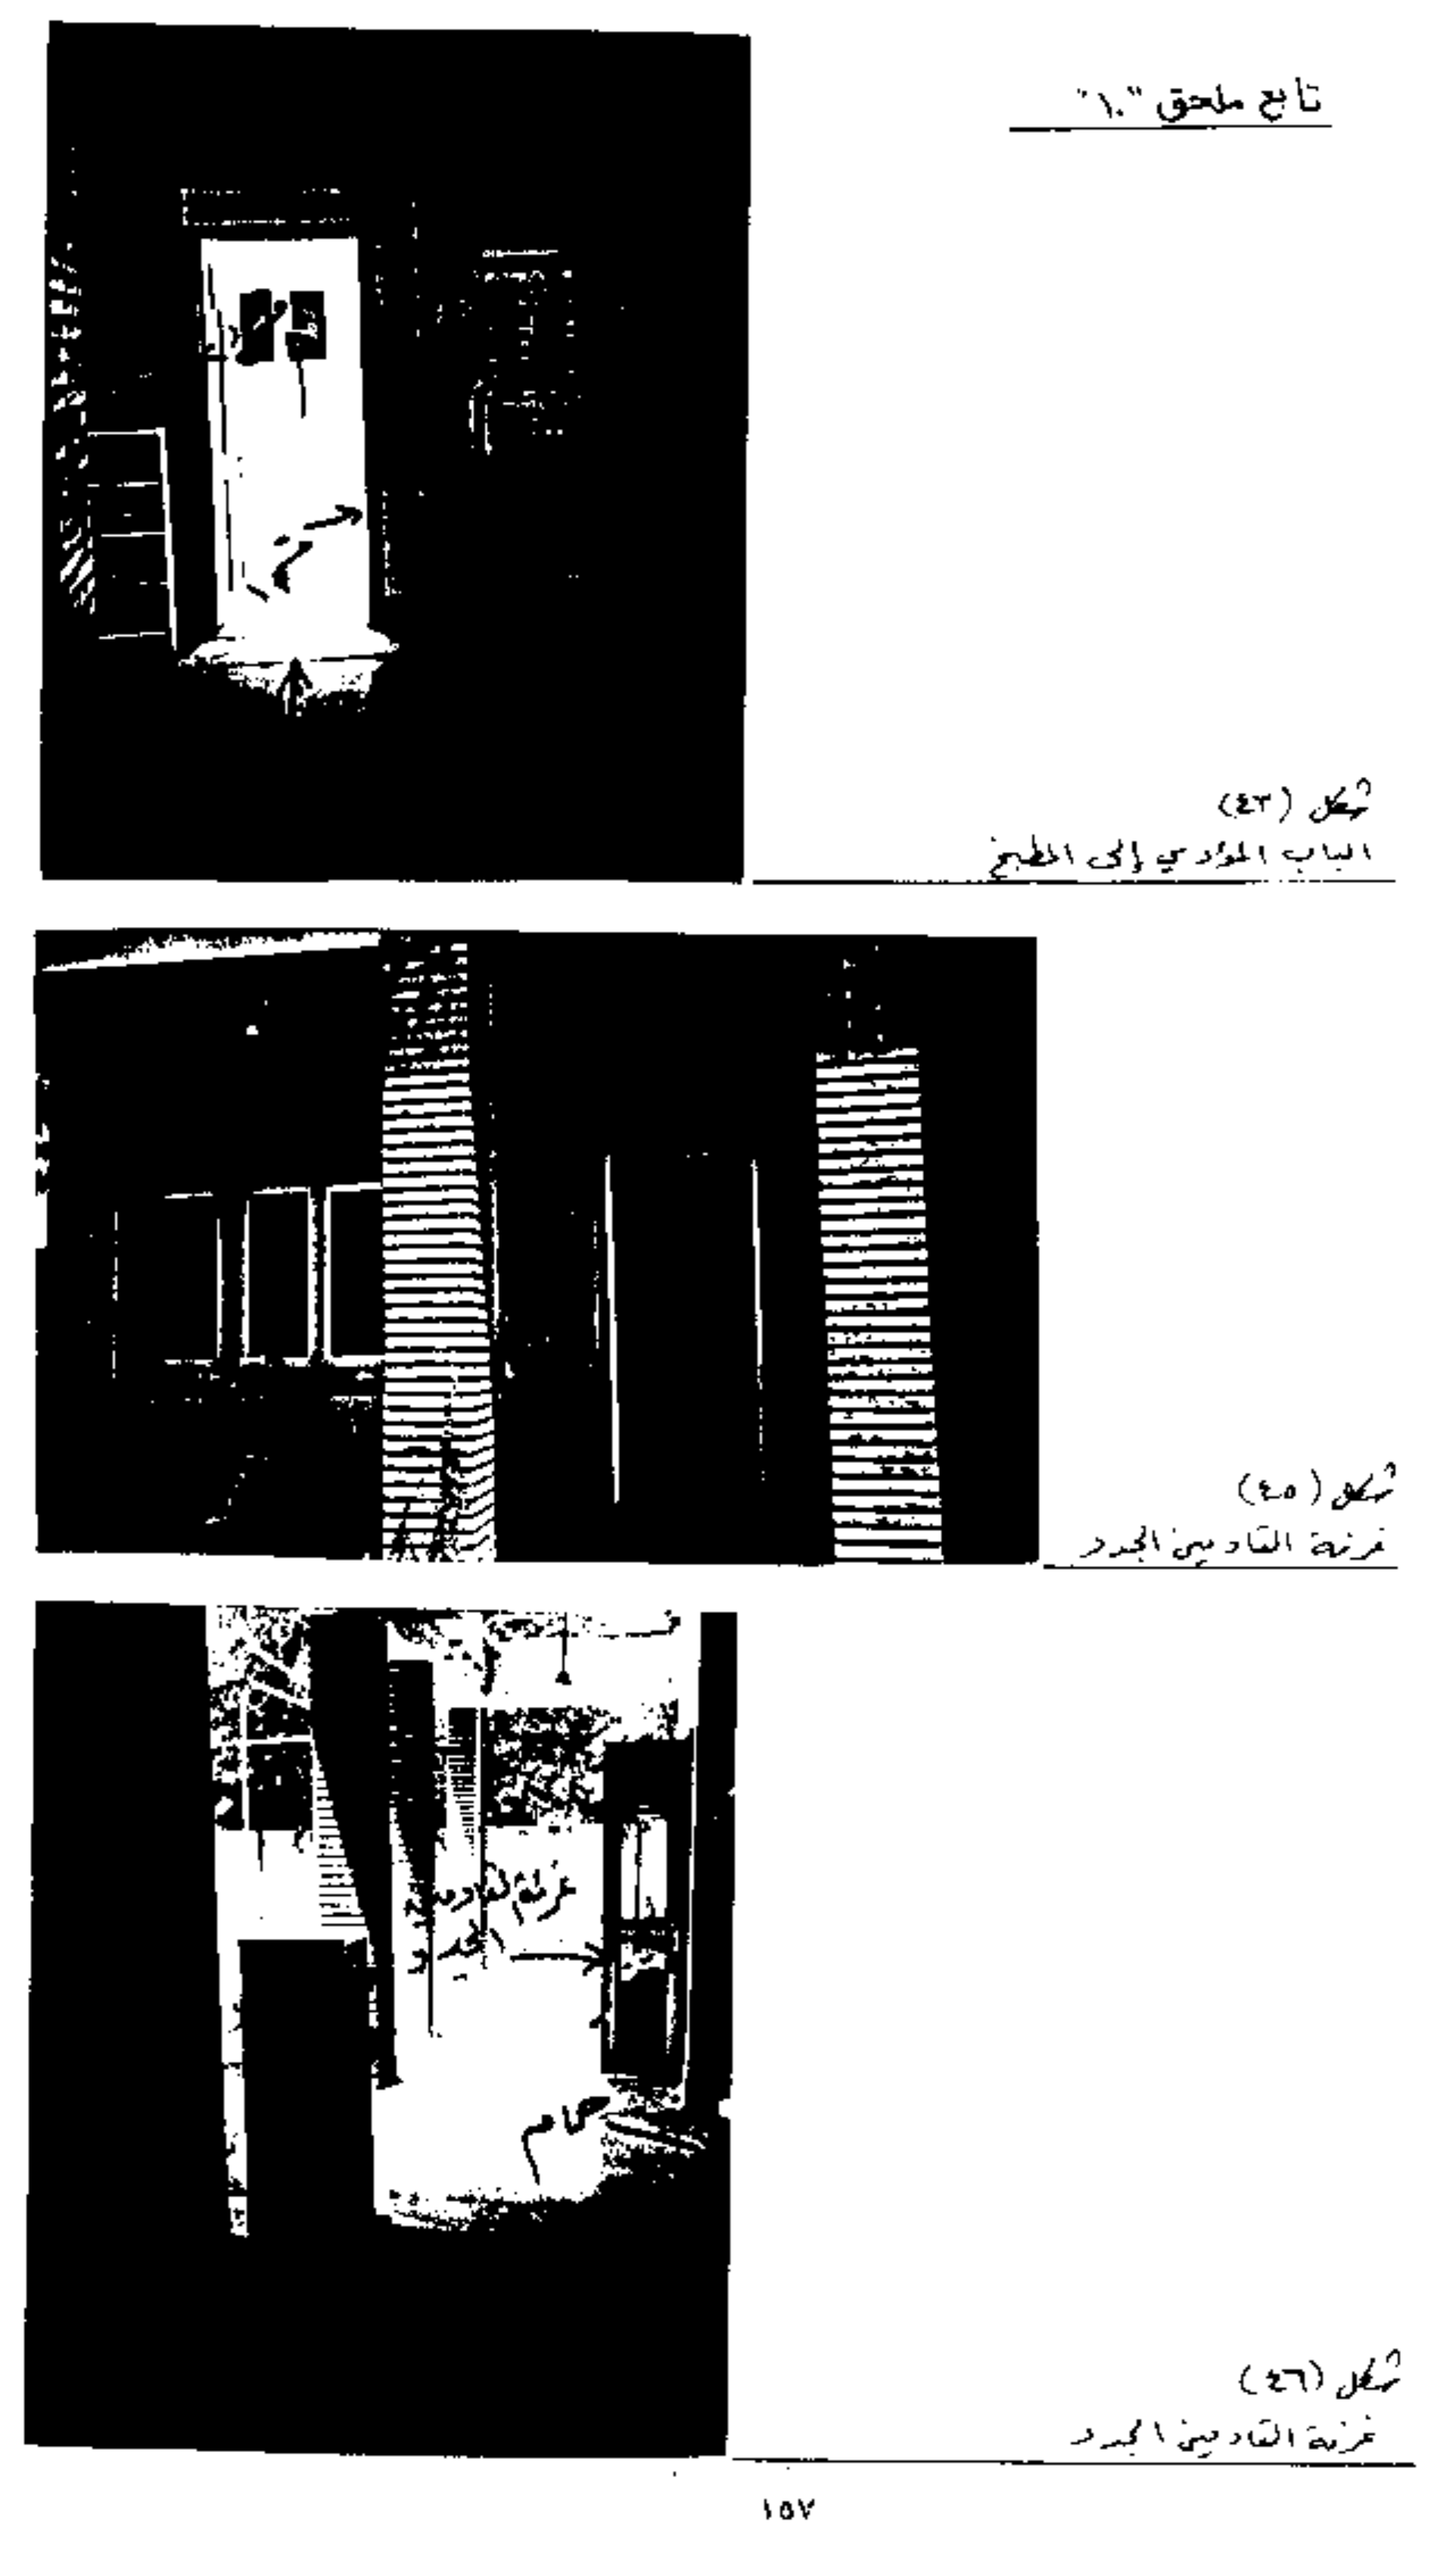 تابع ملحق "١٠"
شكل (٤٣)
الباب المؤدي إلى المطبخ
شكل (٤٥)
غرفة القادمين الجدد
غرفة القادمين
الجدد
حمام
شكل (٤٦)
غرفة القادمين الجدد
١٥٧